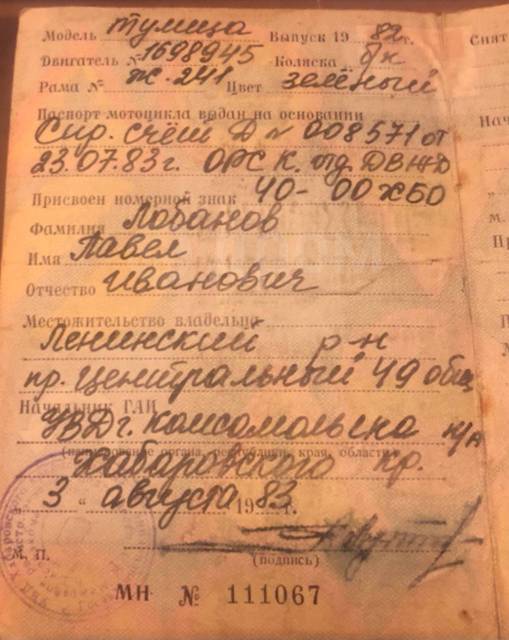 Модель Тулица Выпуск 19 82 г.
Двигатель № 1698945 Коляска б/к
Рама № ТЖ-241 Цвет зелёный
Паспорт мотоцикла выдан на основании
Спр. счёт Д № 008571 от
23.07.83г. ОРС К. отд. ДВЖД
Присвоен номерной знак 40-00 ХБО
Фамилия Лобанов
Имя Павел
Отчество Иванович
Местожительство владельца
Ленинский р-н
пр. Центральный 49 общ
Начальник ГАИ
УВД г. Комсомольска н/А
(наименование органа, республики, края, области)
Хабаровского кр.
„ 3 “ августа 1983 г.
М. П.
(подпись)
МН № 111067
Снят